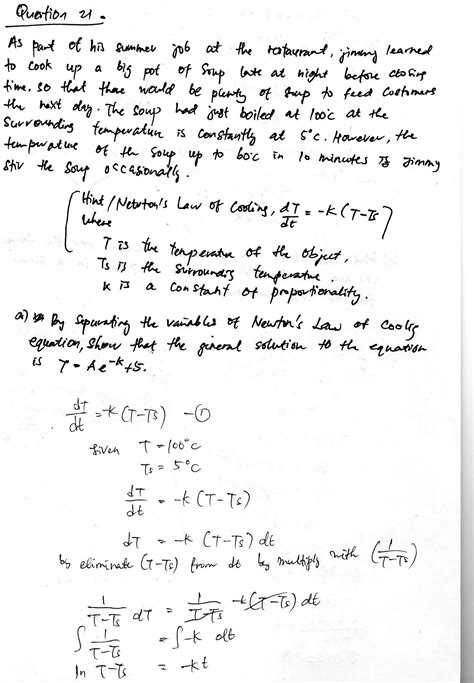 Question 21.
As part of his summer job at the restaurant, jimmy learned
to cook up a big pot of soup late at night before closing
time, so that there would be plenty of soup to feed customers
the next day. The soup had just boiled at 100°c at the
surrounding temperature is constantly at 5°c. However, the
temperature of the soup up to 60°c in 10 minutes is jimmy
stir the soup occasionally.
[Hint/Newton's Law of Cooling, dT/dt = -k(T-Ts)]
where
T is the temperature of the object,
Ts is the surrounding temperature.
k is a constant of proportionality.
a) By separating the variables of Newton's Law of Coolig
equation, show that the general solution to the equation
is T = Ae^-k +5.
dT/dt = -k (T-Ts) -①
Given T = 100°C
Ts = 5°C
dT/dt = -k (T-Ts)
dT = -k (T-Ts) dt
by eliminate (T-Ts) from dt by multiply with (1/T-Ts)
1/T-Ts dT = 1/T-Ts -k(T-Ts) dt
∫ 1/T-Ts = ∫-k dt
ln T-Ts = -kt